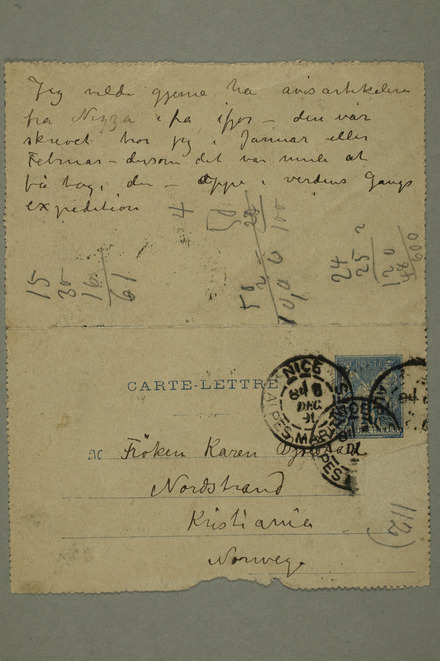 Jeg vilde gjerne ha avisartikelen
fra Nizza ifra ifjor – den var
skrevet tror jeg i Januar eller
Februar – dersom det var mulig at
få tag i den – oppe i Verdens Gangs
expedition
15
30
16
61
4
50
100
24
25
2
120
48
600
CARTE-LETTRE
NICE
8
DEC
91
ALPES MARIT
M Fröken Karen
Nordstrand
Kristiania
Norweg.
112)